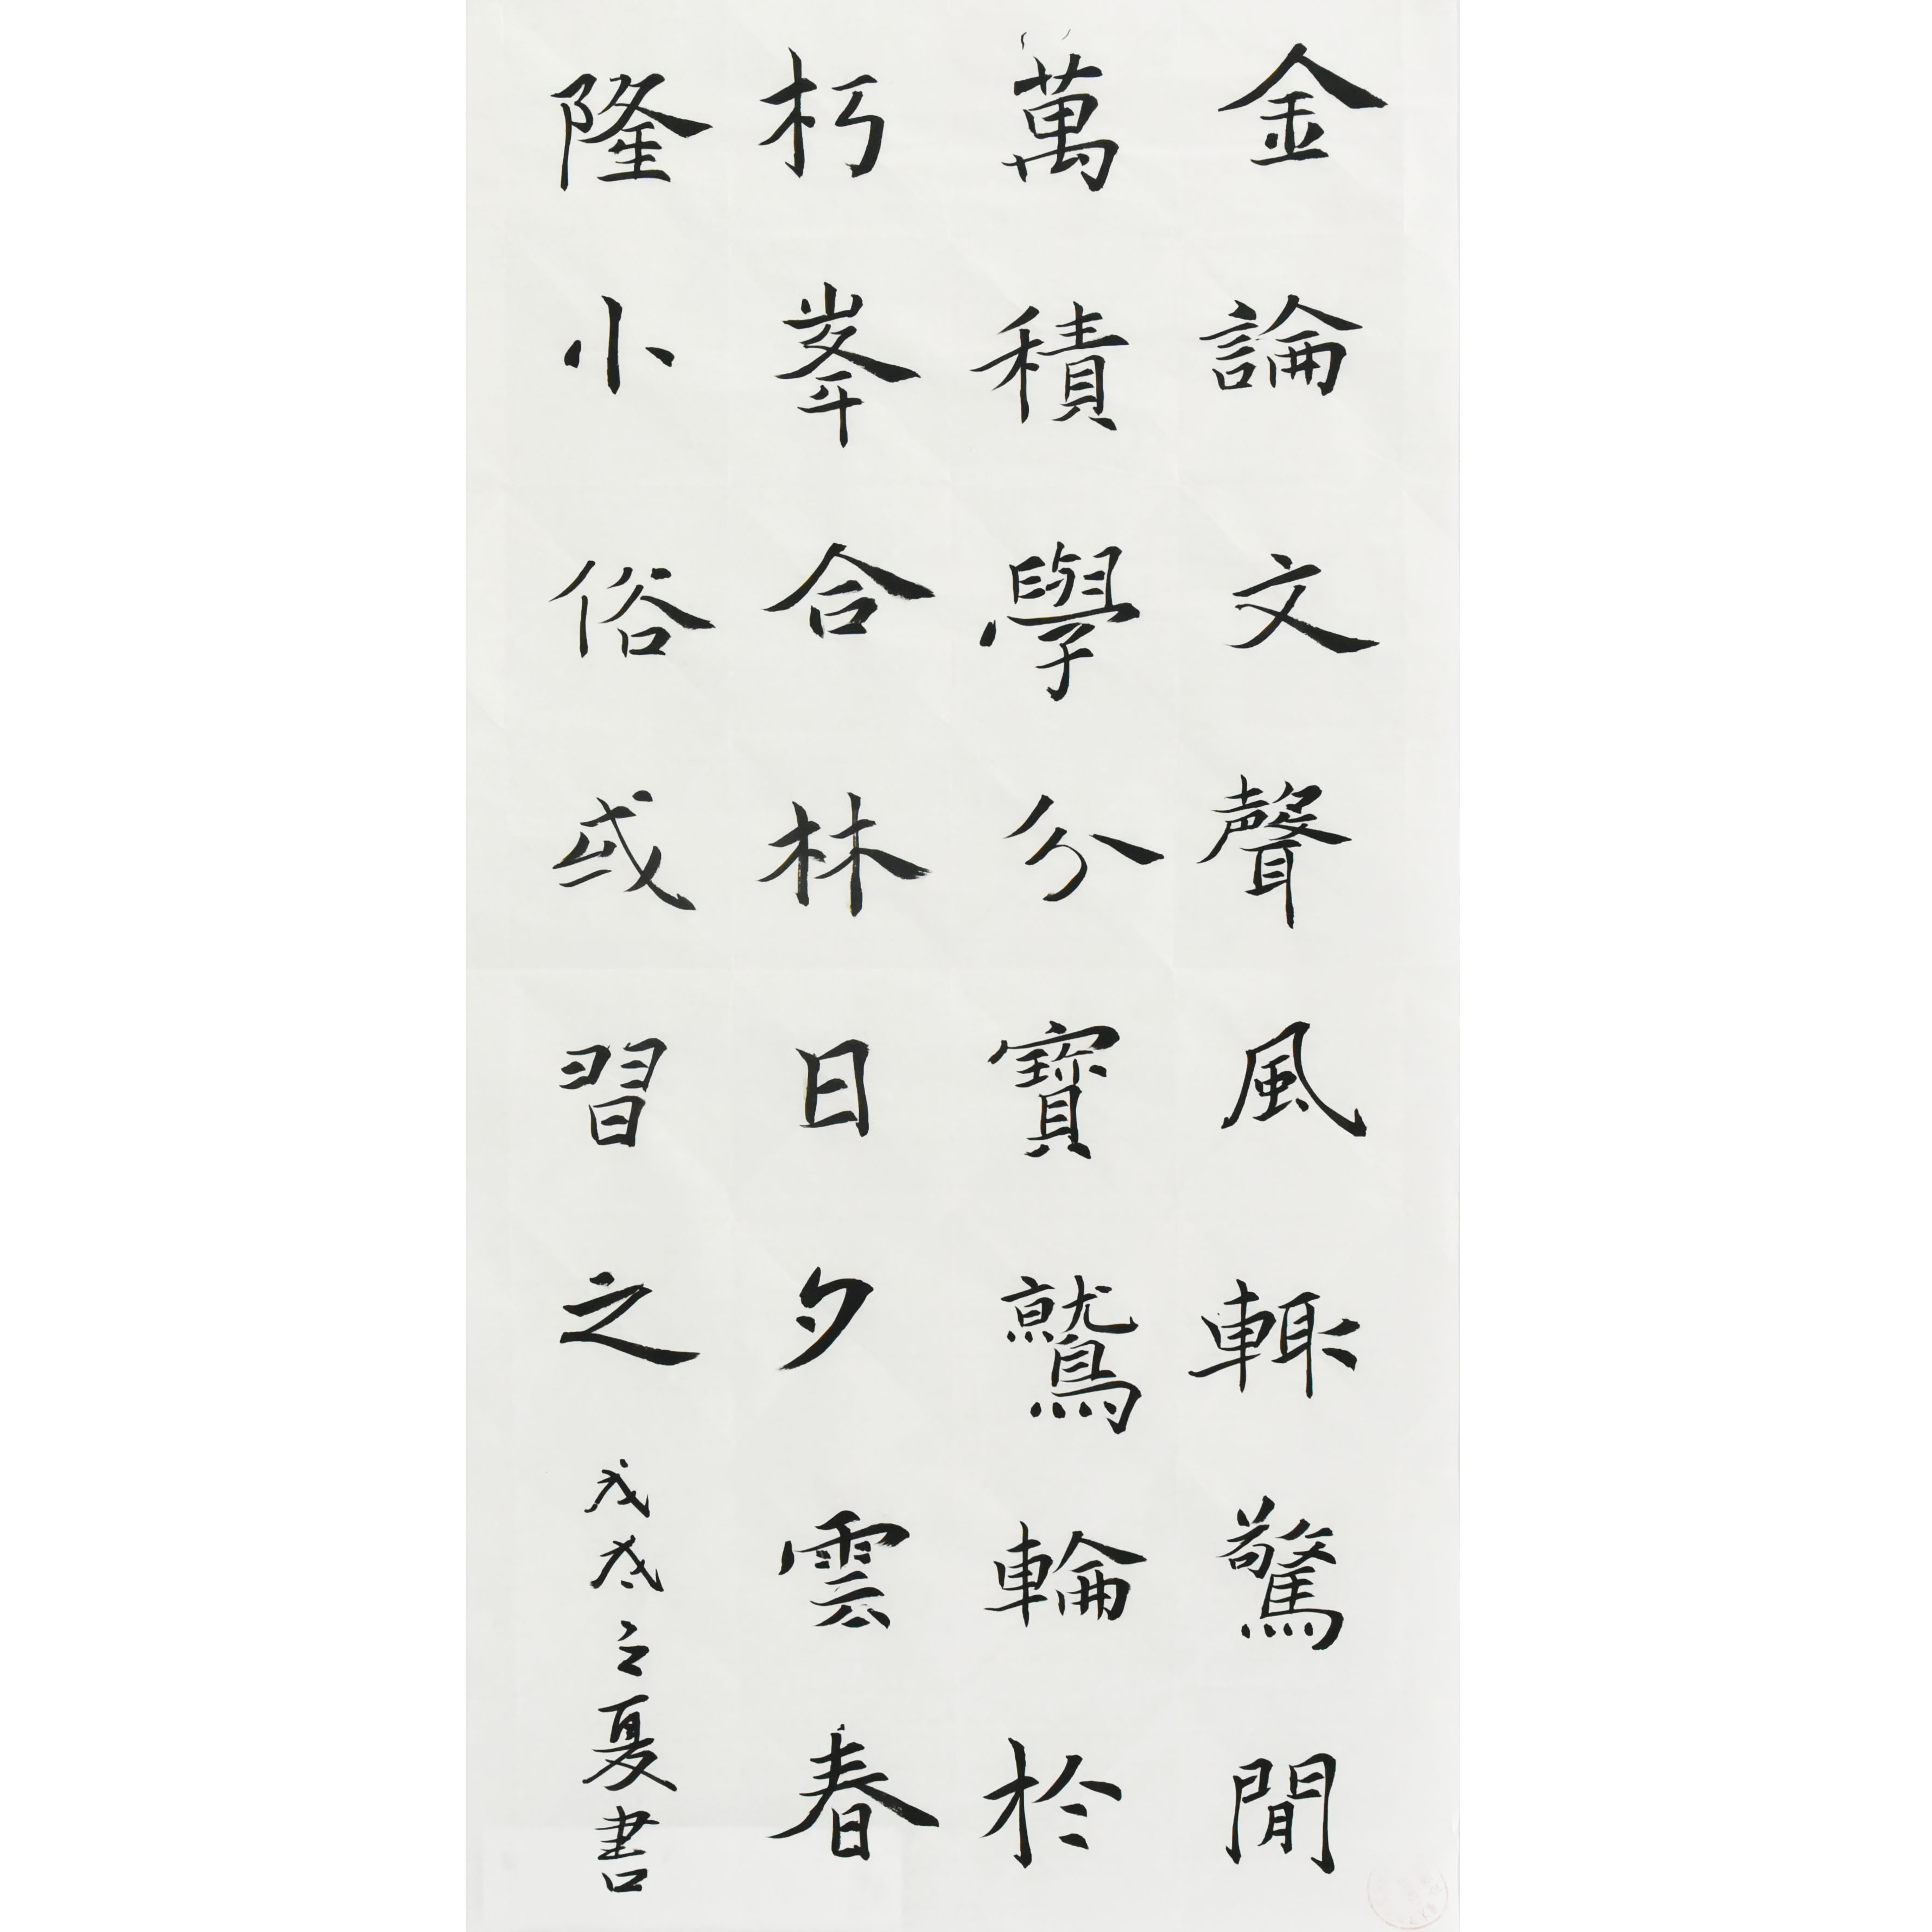 金論文聲風輙驚閒
萬積學分寶鷲輪於
朽峯合林日夕雲春
隆小俗或習之 戊戌之夏書